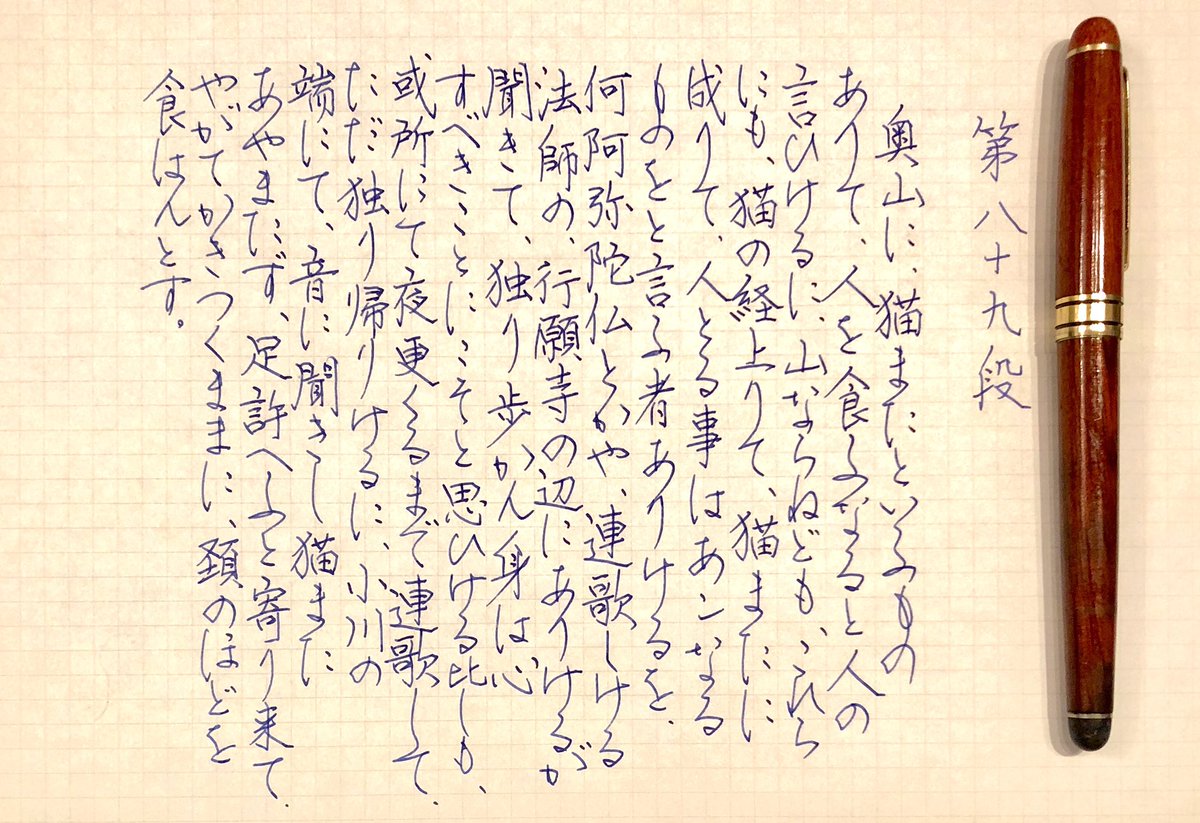 第八十九段
奥山に、猫またといふもの
ありて、人を食ふなると人の
言ひけるに、山ならねども、これら
にも、猫の経上りて、猫またに
成りて、人とる事はあンなる
ものをと言ふ者ありけるを、
何阿弥陀仏とかや、連歌しける
法師の、行願寺の辺にありけるが
聞きて、独り歩かん身は心
すべきことにこそと思ひける比しも、
或所にて夜更くるまで連歌して、
ただ独り帰りけるに、小川の
端にて、音に聞きし猫また
あやまたず、足許へふと寄り来て、
やがてかきつくままに、頚のほどを
食はんとす。